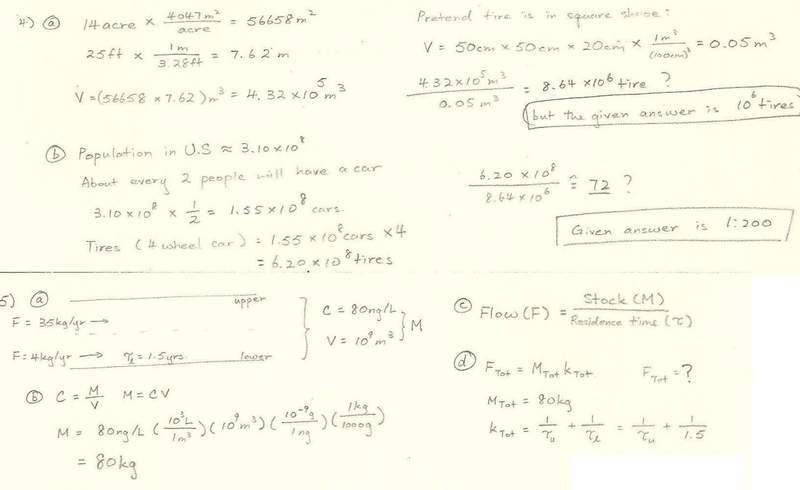 4) ⓐ 14 acre × 4047 m²/acre = 56658 m²
25ft × 1m/3.28ft = 7.62 m
V = (56658 × 7.62) m³ = 4.32 ×10⁵ m³
Pretend tire is in square shape:
V = 50cm × 50cm × 20cm × 1m³/(100cm)³ = 0.05 m³
4.32×10⁵ m³/0.05 m³ = 8.64 ×10⁶ tire ?
but the given answer is 10⁶ tires
ⓑ Population in U.S ≈ 3.10×10⁸
About every 2 people will have a car
3.10×10⁸ × 1/2 = 1.55×10⁸ cars.
Tires (4 wheel car) = 1.55 ×10⁸ cars ×4
= 6.20 ×10⁸ tires
6.20 ×10⁸/8.64 ×10⁶ = 72 ?
Given answer is 1:200
5) ⓐ upper
F = 35kg/yr →
F = 4kg/yr → τℓ = 1.5yrs. lower
C = 80ng/L
V = 10⁹ m³
M
ⓑ C = M/V M = CV
M = 80ng/L (10³L/1m³)(10⁹m³)(10⁻⁹g/1ng)(1kg/1000g)
= 80kg
ⓒ Flow (F) = Stock (M)/Residence time (τ)
ⓓ F_Tot = M_Tot k_Tot F_Tot = ?
M_Tot = 80kg
k_Tot = 1/τu + 1/τℓ = 1/τu + 1/1.5